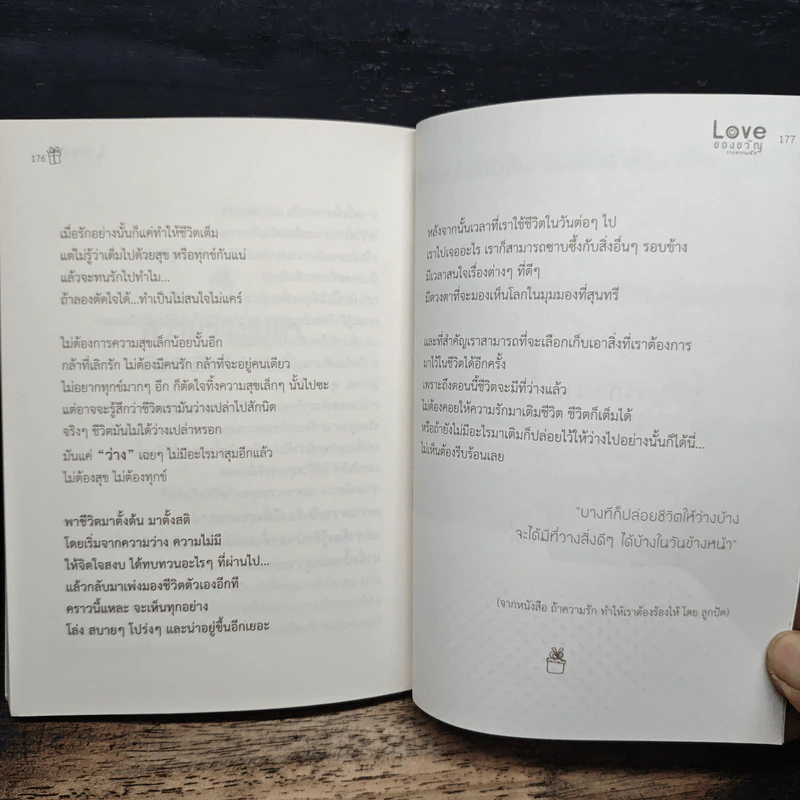 176
เมื่อรักอย่างนั้นก็แค่ทำให้ชีวิตเต็ม
แต่ไม่รู้ว่าเต็มไปด้วยสุข หรือทุกข์กันแน่
แล้วจะทนรักไปทำไม...
ถ้าลองตัดใจได้...ทำเป็นไม่สนใจไม่แคร์
ไม่ต้องการความสุขเล็กน้อยนั้นอีก
กล้าที่เลิกรัก ไม่ต้องมีคนรัก กล้าที่จะอยู่คนเดียว
ไม่อยากทุกข์มากๆ อีก ก็ตัดทิ้งความสุขเล็กๆ นั้นไปซะ
แต่อาจจะรู้สึกว่าชีวิตเรามันว่างเปล่าไปสักนิด
จริงๆ ชีวิตมันไม่ได้ว่างเปล่าหรอก
มันแค่ “ว่าง” เฉยๆ ไม่มีอะไรมาสุมอีกแล้ว
ไม่ต้องสุข ไม่ต้องทุกข์
พาชีวิตมาตั้งต้น มาตั้งสติ
โดยเริ่มจากความว่าง ความไม่มี
ให้จิตใจสงบ ได้ทบทวนอะไรๆ ที่ผ่านไป...
แล้วกลับมาเพ่งมองชีวิตตัวเองอีกที
คราวนี้แหละ จะเห็นทุกอย่าง
โล่ง สบายๆ โปร่งๆ และน่าอยู่ขึ้นอีกเยอะ
Love
ของขวัญ
177
หลังจากนั้นเวลาที่เราใช้ชีวิตในวันต่อๆ ไป
เราไปเจออะไร เราก็สามารถซาบซึ้งกับสิ่งอื่นๆ รอบข้าง
มีเวลาสนใจเรื่องต่างๆ ที่ดีๆ
มีดวงตาที่จะมองเห็นโลกในมุมมองที่สุนทรี
และที่สำคัญเราสามารถที่จะเลือกเก็บเอาสิ่งที่เราต้องการ
มาไว้ในชีวิตได้อีกครั้ง
เพราะถึงตอนนี้ชีวิตจะมีที่ว่างแล้ว
ไม่ต้องคอยให้ความรักมาเติมชีวิต ชีวิตก็เต็มได้
หรือถ้ายังไม่มีอะไรมาเติมก็ปล่อยไว้ให้ว่างไปอย่างนั้นก็ได้นี่...
ไม่เห็นต้องรีบร้อนเลย
“บางทีก็ปล่อยชีวิตให้ว่างบ้าง
จะได้มีที่วางสิ่งดีๆ ได้บ้างในวันข้างหน้า”
(จากหนังสือ ถ้าความรัก ทำให้เราต้องร้องไห้ โดย ลูกปัด)